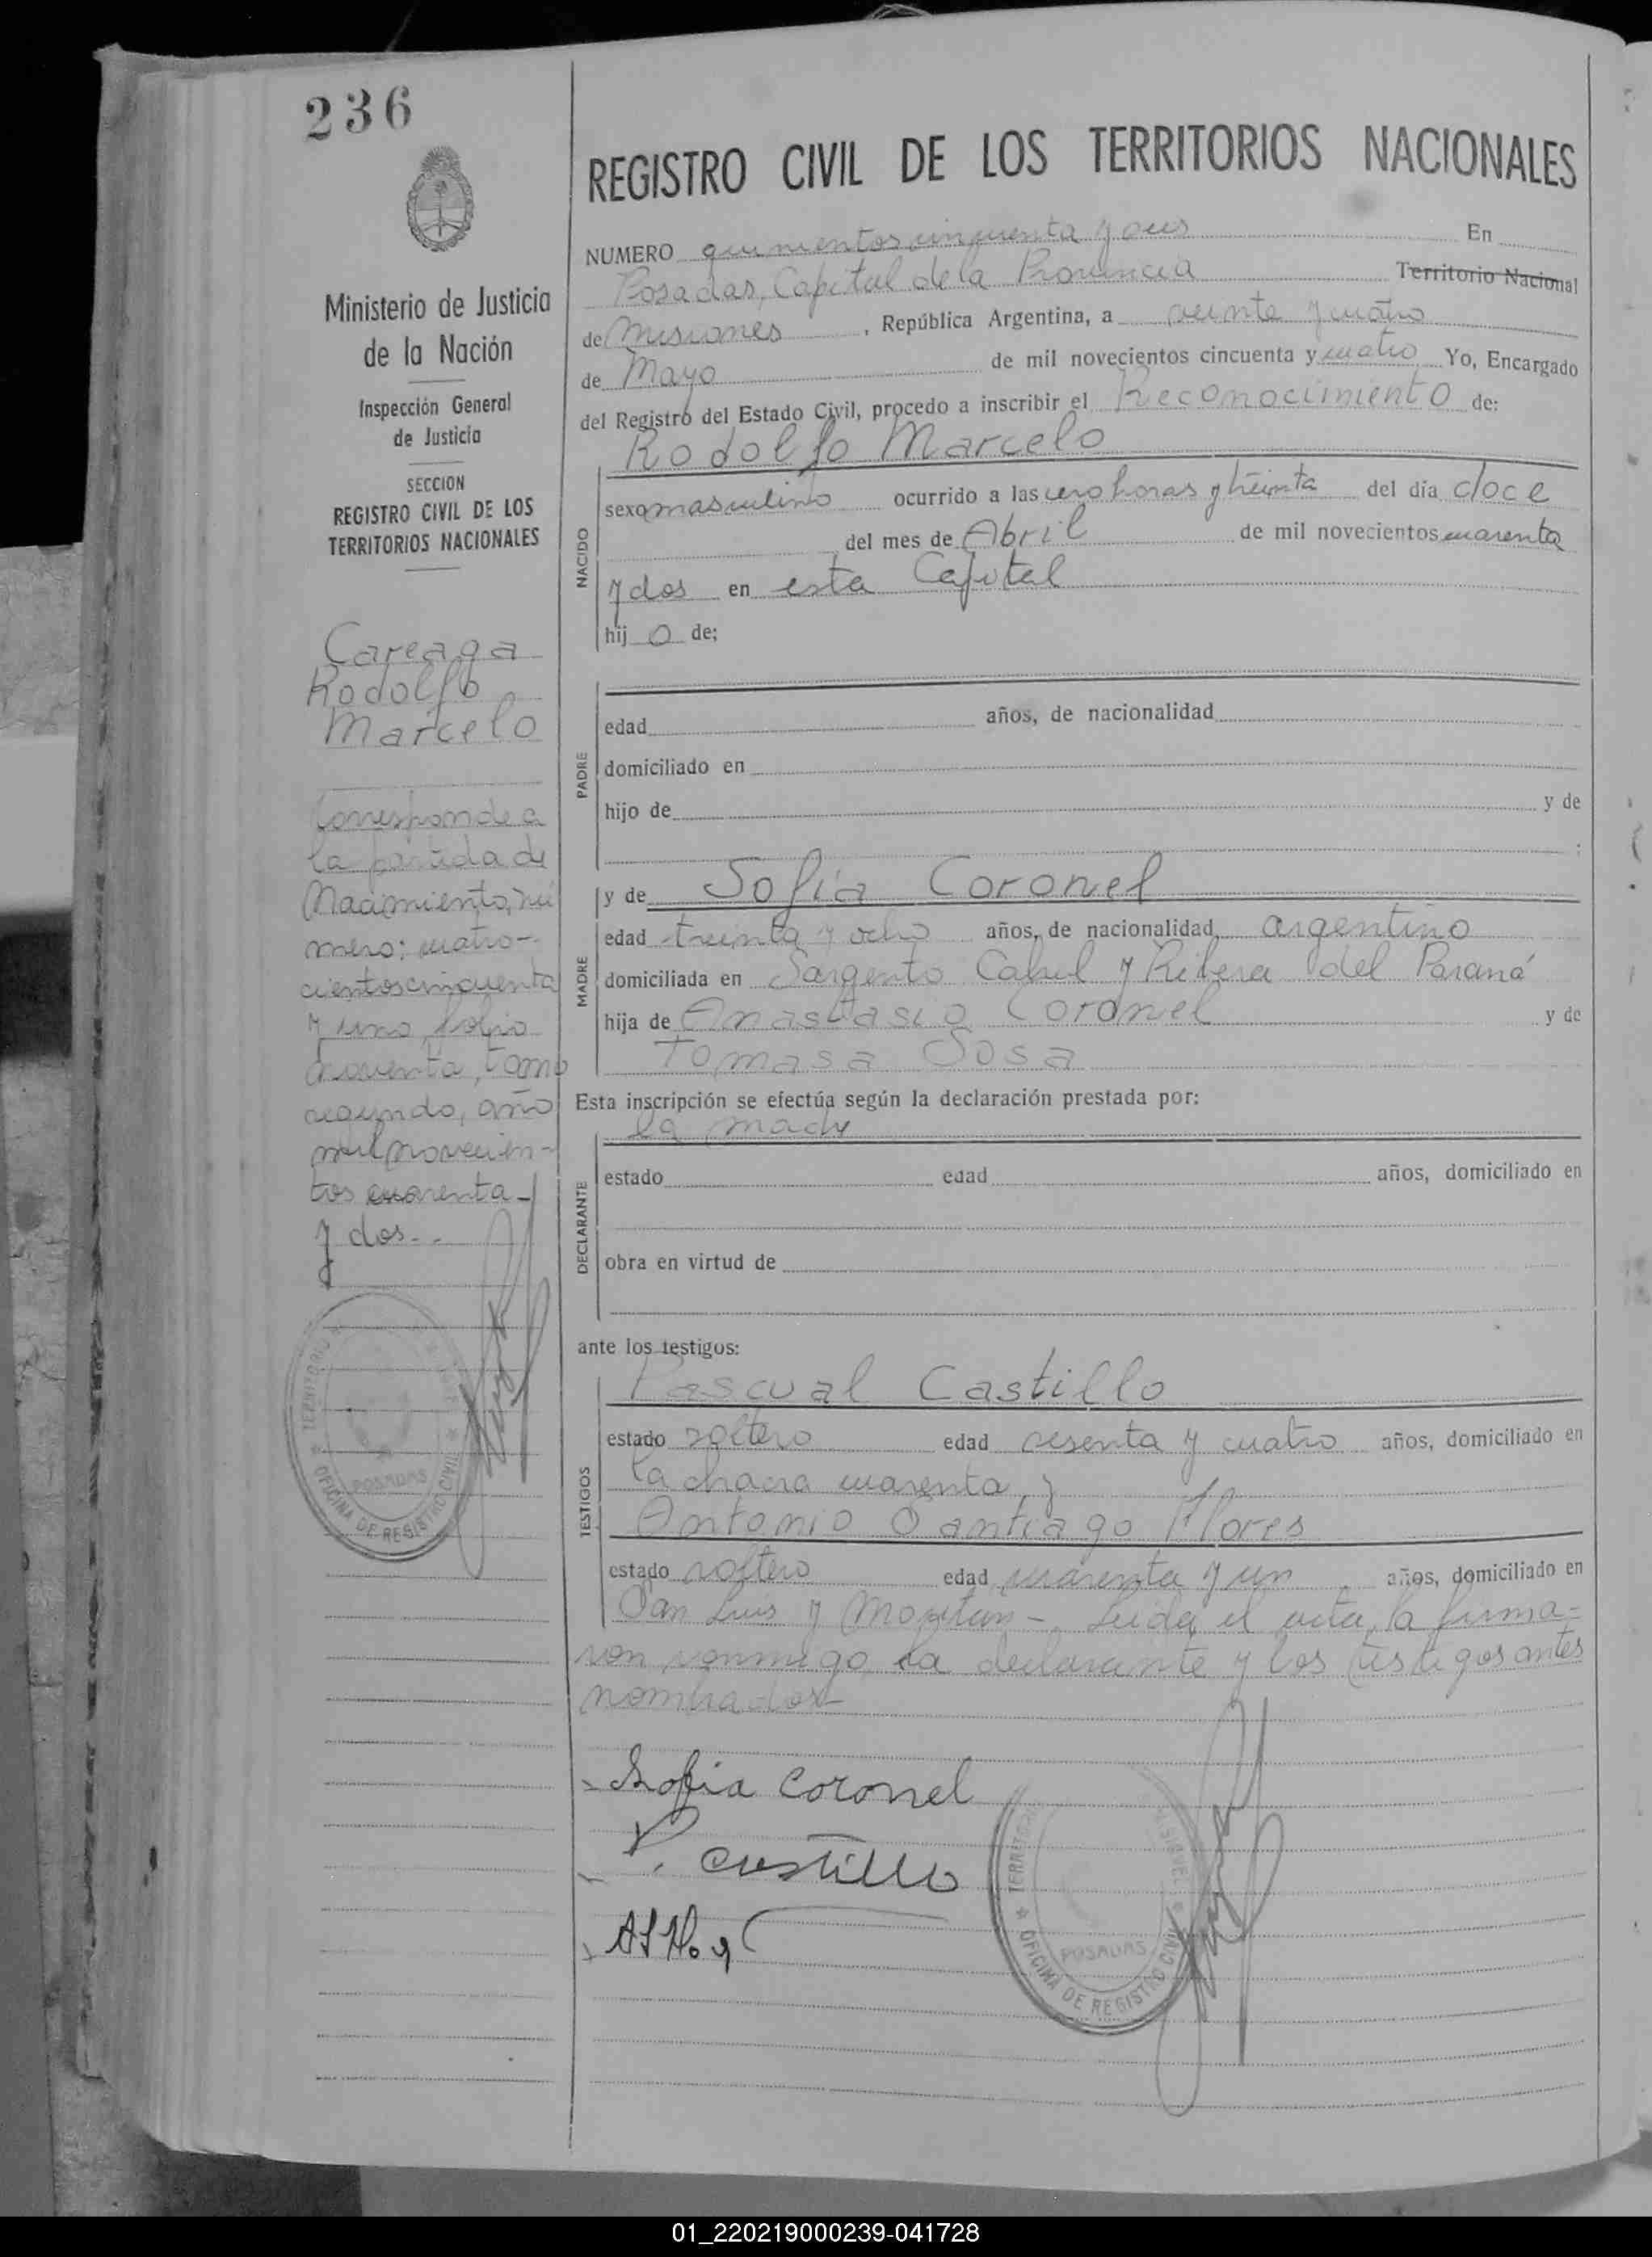 236
Ministerio de Justicia
de la Nación
Inspección General
de Justicia
SECCION
REGISTRO CIVIL DE LOS
TERRITORIOS NACIONALES
Careaga
Rodolfo
Marcelo
Corresponde a
la partida de
Nacimiento, nú
mero; cuatro-
cientos cincuenta
y uno, folio
noventa, tomo
segundo, año
mil novecien-
tos cuarenta
y dos.-
REGISTRO CIVIL DE LOS TERRITORIOS NACIONALES
NUMERO quinientos cincuenta y En
Posadas, Capital de la Provincia Territorio Nacional
de Misiones, República Argentina, a veinte y cuatro
de Mayo de mil novecientos cincuenta y cuatro Yo, Encargado
del Registro del Estado Civil, procedo a inscribir el Reconocimiento de:
Rodolfo Marcelo
NACIDO
sexo masculino ocurrido a las cero horas y treinta del día doce
del mes de Abril de mil novecientos cuarenta
y dos en esta Capital
hijo de;
PADRE
edad años, de nacionalidad
domiciliado en
hijo de y de
:
MADRE
y de Sofía Coronel
edad treinta y ocho años, de nacionalidad, argentino
domiciliada en Sargento Cabral y Ribera del Paraná
hija de Anastasio Coronel y de
Tomasa Sosa
Esta inscripción se efectúa según la declaración prestada por:
la madre
DECLARANTE
estado edad años, domiciliado en
obra en virtud de
ante los testigos:
TESTIGOS
Pascual Castillo
estado soltero edad sesenta y cuatro años, domiciliado en
la chacra cuarenta, y
Antonio Santiago Flores
estado soltero edad cuarenta y un años, domiciliado en
San Luis y - Leida el acta, la firma-
ron conmigo la declarante y los testigos antes
nombrados-
Sofia Coronel
P. Castillo
TERRITORIO
POSADAS
OFICINA DE REGISTRO CIVIL
TERRITORIO
POSADAS
OFICINA DE REGISTRO CIVIL
01_220219000239-041728